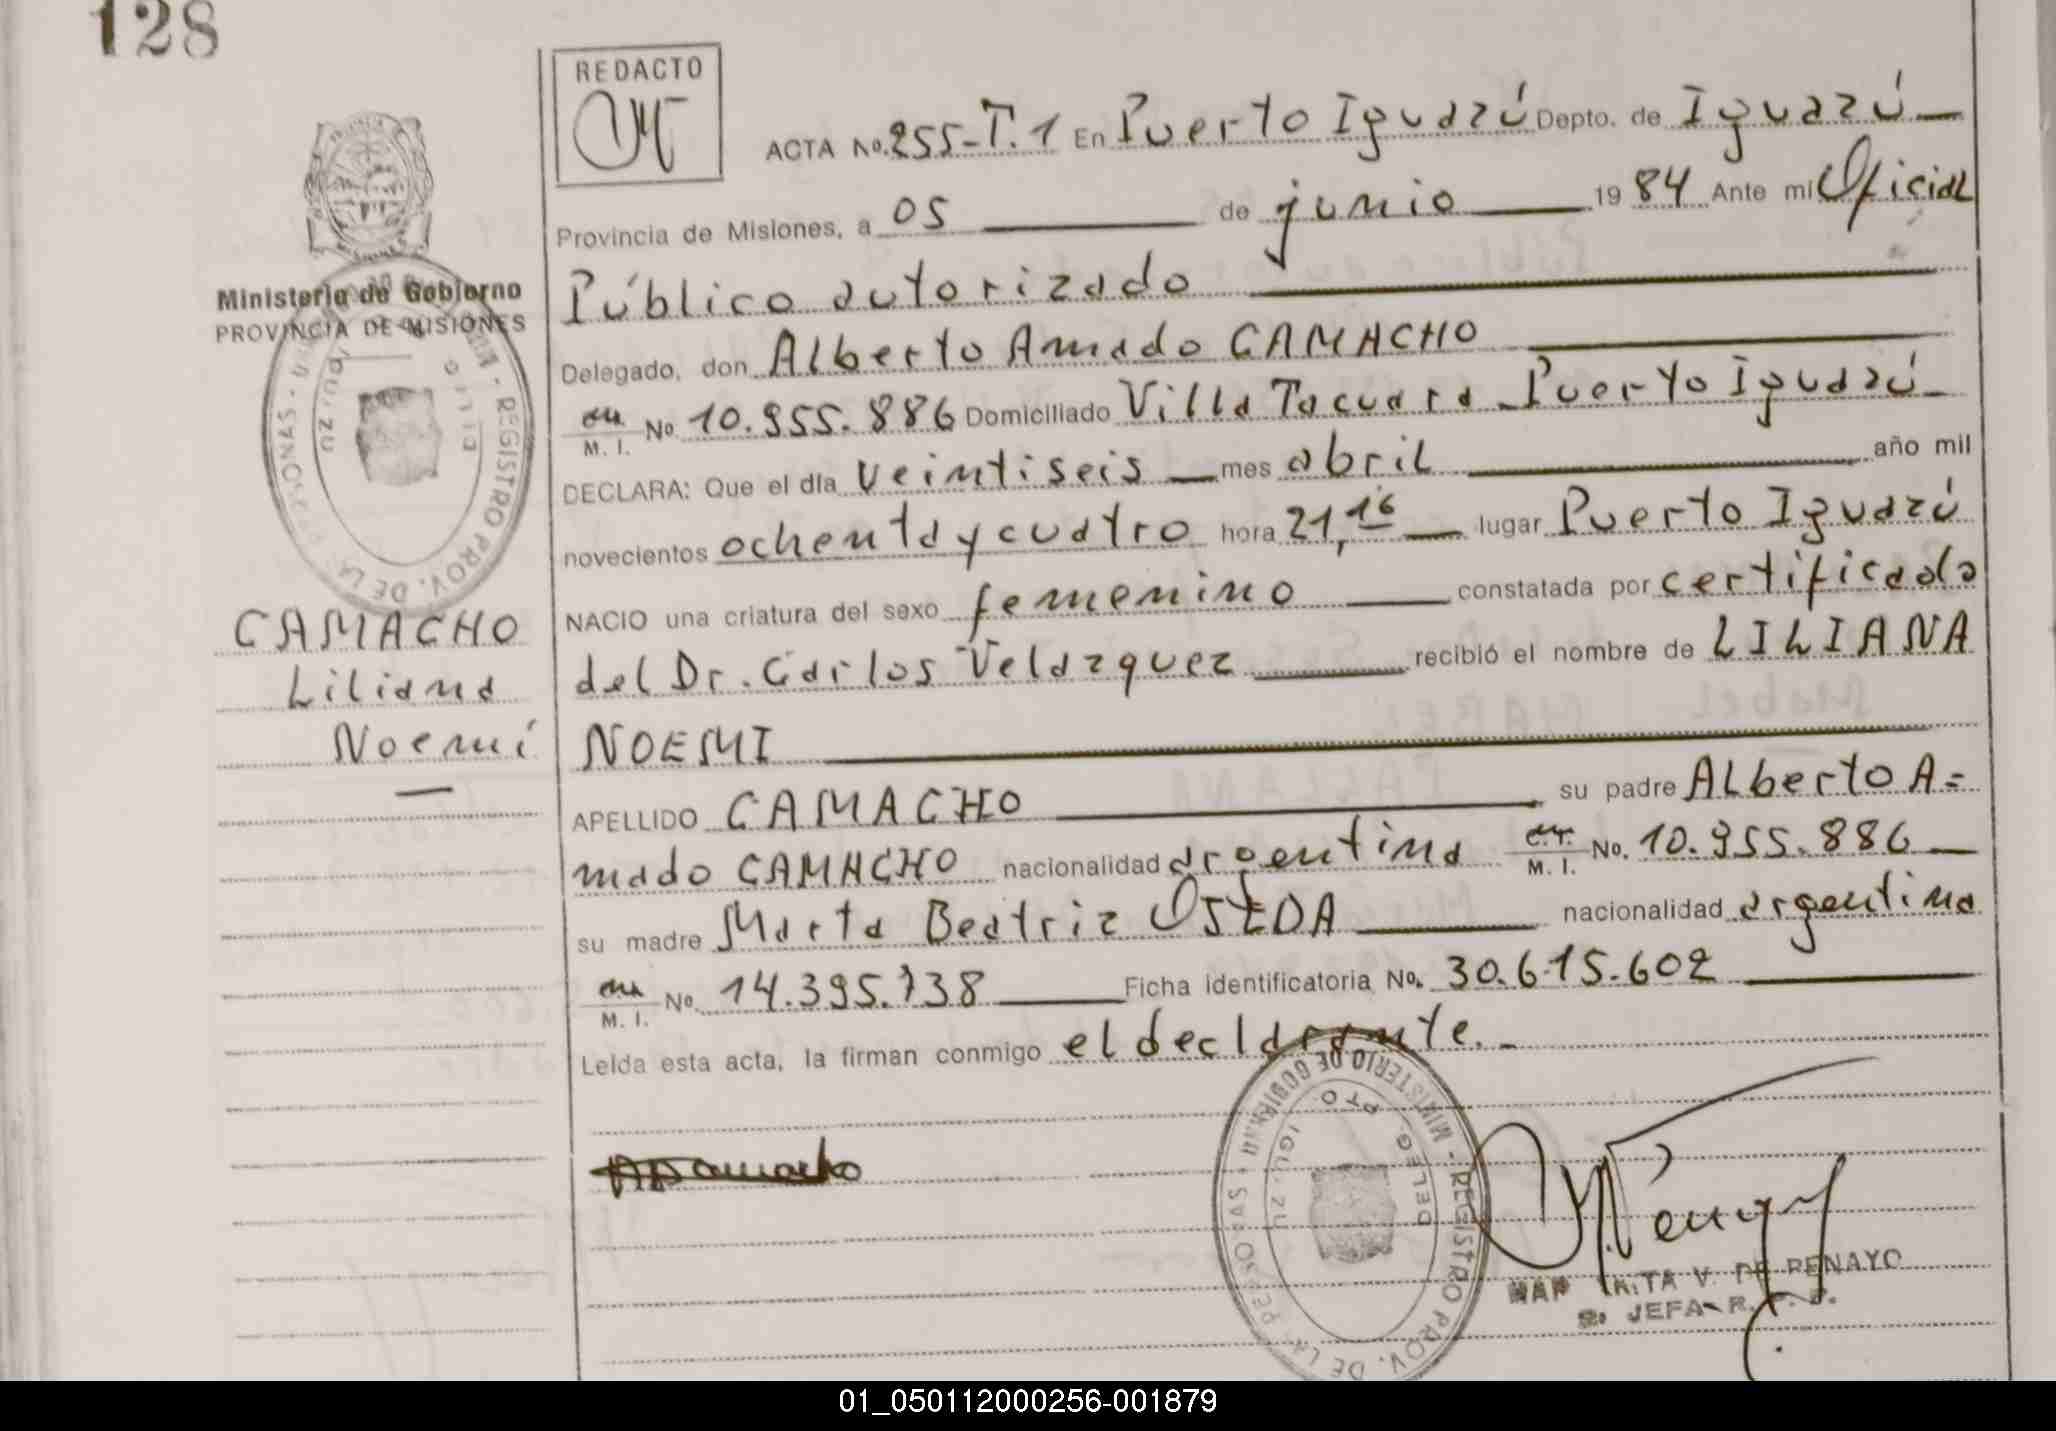 128
REDACTO
ACTA No. 255-T.1 En Puerto Iguazú Depto. de Iguazú
Provincia de Misiones, a 05 de junio 1984 Ante mi Oficial
Público autorizado
Delegado, don Alberto Amado CAMACHO
M. I. No. 10.955.886 Domiciliado Villa Tacuara - Puerto Iguazú
DECLARA: Que el día veintiseis mes abril año mil
novecientos ochenta y cuatro hora 21,16 lugar Puerto Iguazú
NACIO una criatura del sexo femenino constatada por certificado
del Dr. Carlos Velazquez recibió el nombre de LILIANA
NOEMI
APELLIDO CAMACHO su padre Alberto A=
mado CAMACHO nacionalidad argentina M. I. No. 10.955.886
su madre Marta Beatriz OJEDA nacionalidad argentina
M. I. No. 14.395.738 Ficha identificatoria No. 30.615.602
Leída esta acta, la firman conmigo el declarante.
Ministerio de Gobierno
PROVINCIA DE MISIONES
CAMACHO
Liliana
Noemí
MINISTERIO DE GOBIERNO - REGISTRO PROV. DE LAS PERSONAS
DELEG.
V. DE PENAYO
JEFA R.
01_050112000256-001879